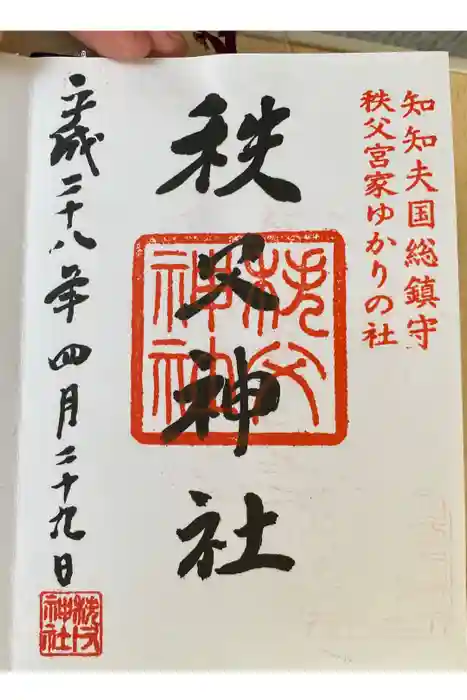 知知夫国総鎮守
秩父宮家ゆかりの社
秩父神社
秩父神社
平成二十八年四月二十九日
秩父神社